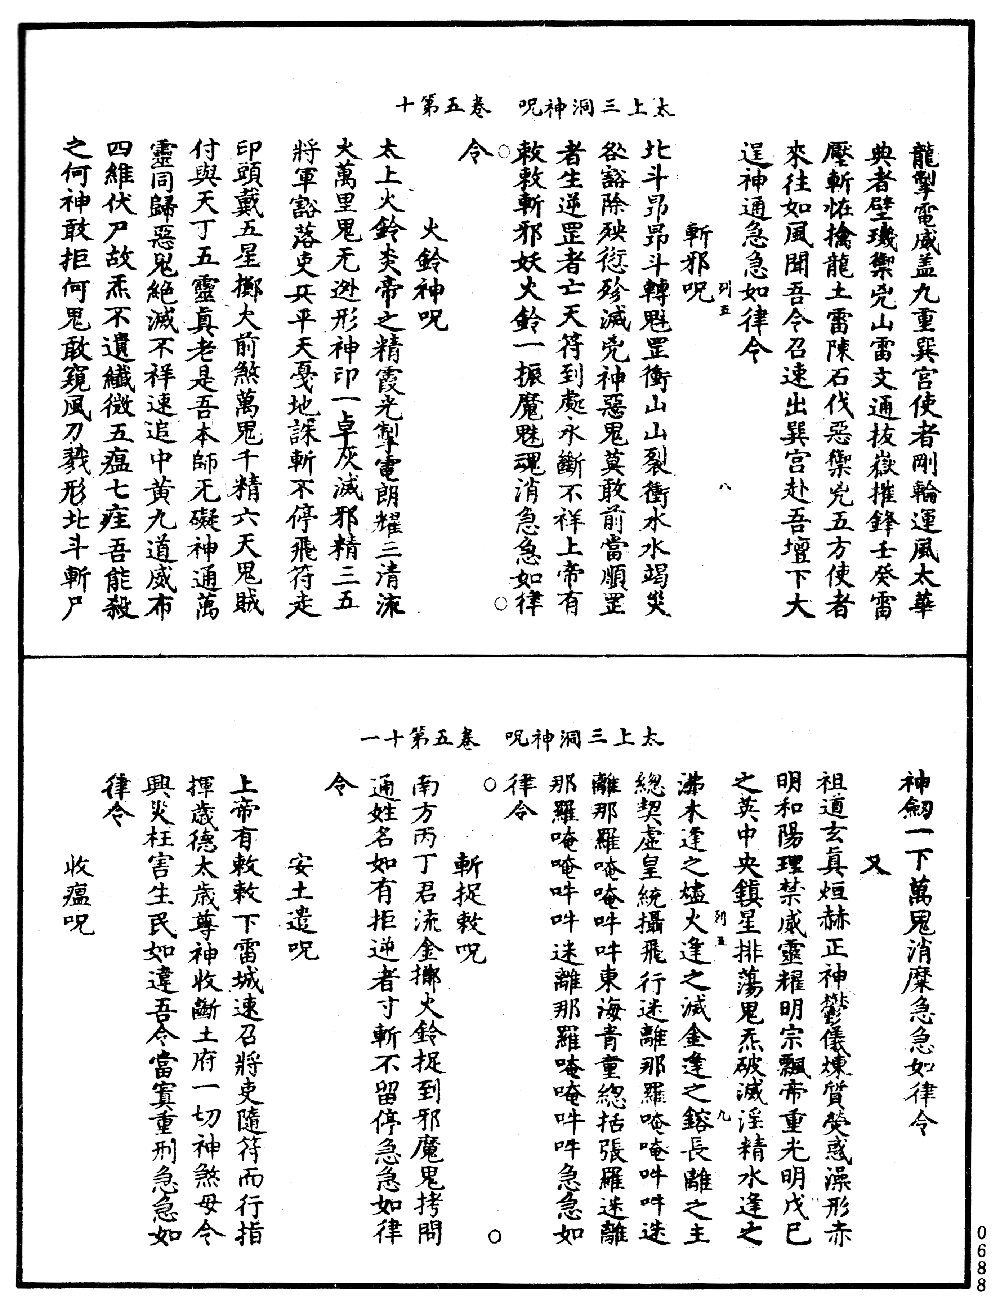 太上三洞神呪　卷五第十
龍掣電威盖九重巽宮使者剛輪運風太華
典者壁璣禦兇山雷文通拔嶽摧鋒壬癸雷
壓斬恠擒龍土雷陳石伐惡禦兇五方使者
來往如風聞吾令召速出巽宮赴吾壇下大
逞神通急急如律令
列五
八
斬邪呪
北斗昂昂斗轉魁罡衝山山裂衝水水竭災
咎豁除殃愆殄滅兇神惡鬼莫敢前當順罡
者生逆罡者亡天符到處永斷不祥上帝有
敕敕斬邪妖火鈴一振魔魅魂消急急如律
令
火鈴神呪
太上火鈴炎帝之精霞光掣電朗耀三清流
火萬里鬼无逊形神印一卓灰滅邪精三五
將軍豁落吏兵平天戛地誅斬不停飛符走
印頭戴五星擲火前煞萬鬼千精六天鬼賊
付與天丁五靈眞老是吾本師无礙神通萬
靈同歸惡鬼絕滅不祥速追中黄九道威布
四維伏尸故炁不遺纖微五瘟七疰吾能殺
之何神敢拒何鬼敢窺風刀戮形北斗斬尸
太上三洞神呪　卷五第十一
神劒一下萬鬼消糜急急如律令
又
祖道玄眞烜赫正神鬱儀煉質熒惑澡形赤
明和陽理禁威靈耀明宗飄帝重光明戊巳
之英中央鎮星排蕩鬼炁破滅淫精水逢之
沸木逢之爐火逢之滅金逢之鎔長離之主
列五
九
總契虛皇統攝飛行迷離那羅唵唵吽吽迷
離那羅唵唵吽吽東海青童總括張羅迷離
那羅唵唵吽吽迷離那羅唵唵吽吽急急如
律令
斬捉敕呪
南方丙丁君流金擲火鈴捉到邪魔鬼拷問
通姓名如有拒逆者寸斬不留停急急如律
令
安土遣呪
上帝有敕敕下雷城速召將吏隨符而行指
揮歲德太歲尊神收斷土府一切神煞毋令
興災枉害生民如違吾令當寘重刑急急如
律令
收瘟呪
0688